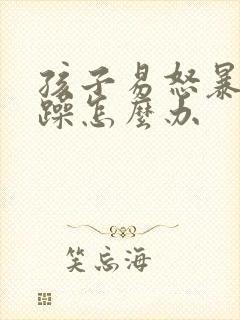 孩子易怒暴
躁怎麼办
笑忘海